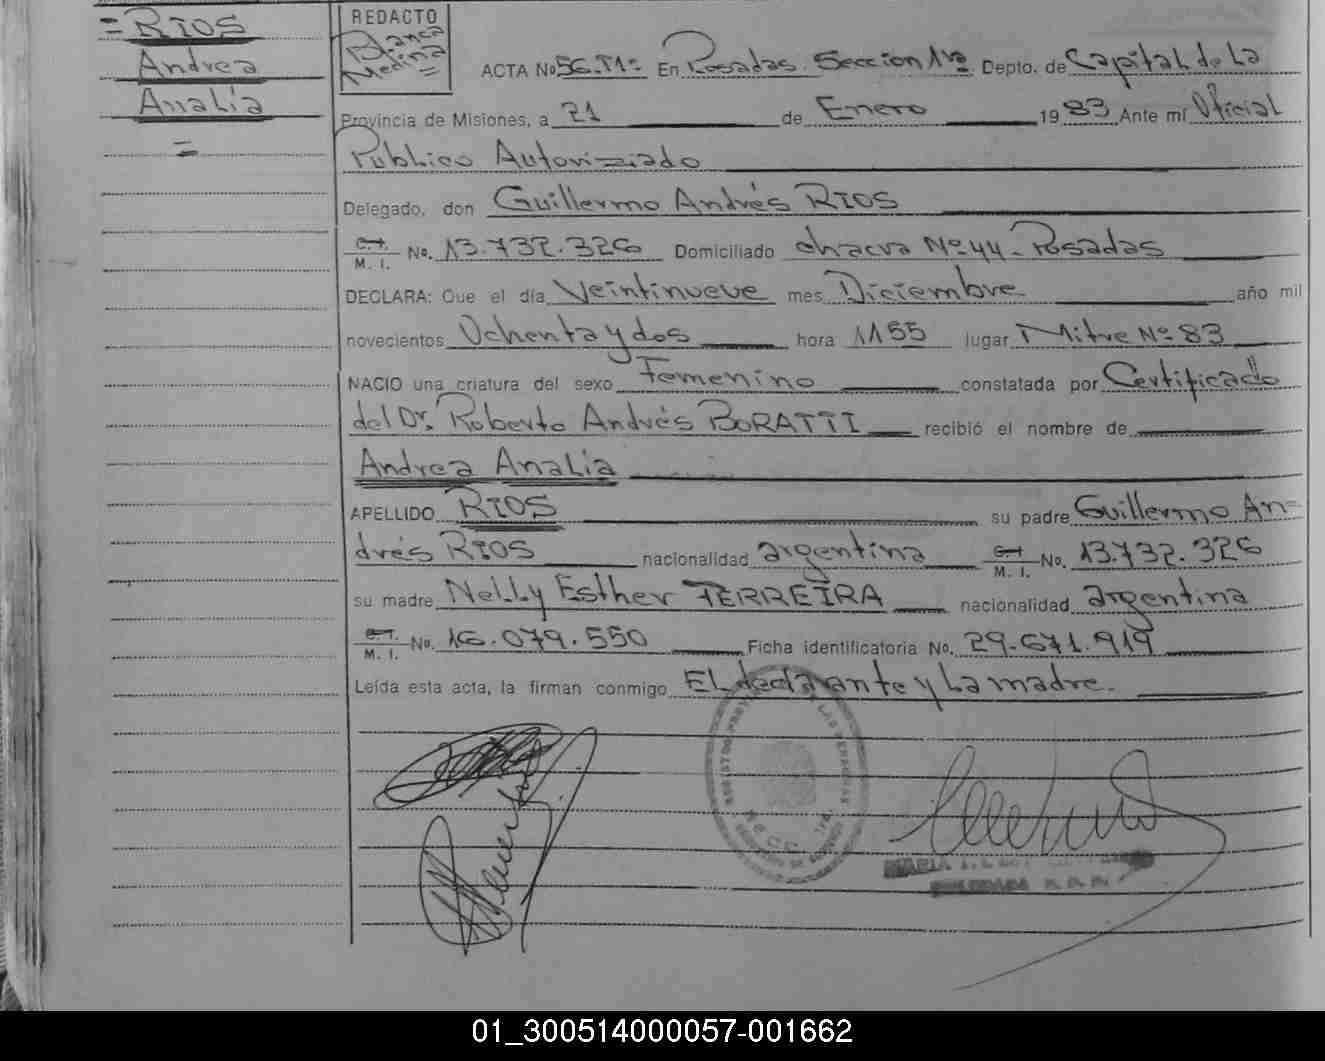 = RIOS
Andrea
Analía
=
REDACTO
Blanca
Medina
=
ACTA No 56.T1º En Posadas Sección 1ra Depto. de Capital de La
Provincia de Misiones, a 21 de Enero 1983 Ante mí Oficial
Público Autoriziado
Delegado, don Guillermo Andrés RIOS
C.I. M. I. No. 13.732.326 Domiciliado chacra Nº 44 - Posadas
DECLARA: Que el día Veintinueve mes Diciembre año mil
novecientos Ochenta y dos hora 1155 lugar Mitre Nº 83
NACIO una criatura del sexo Femenino constatada por Certificado
del Dr. Roberto Andrés BORATTI recibió el nombre de
Andrea Analía
APELLIDO RIOS su padre Guillermo An=
drés RIOS nacionalidad argentina C.I. M. I. No. 13.732.326
su madre Nelly Esther FERREIRA nacionalidad argentina
C.I. M. I. No. 16.079.550 Ficha identificatoria No. 29.671.919
Leída esta acta, la firman conmigo El declarante y La madre.
REGISTRO PROV. DE LAS PERSONAS
MARIA
01_300514000057-001662